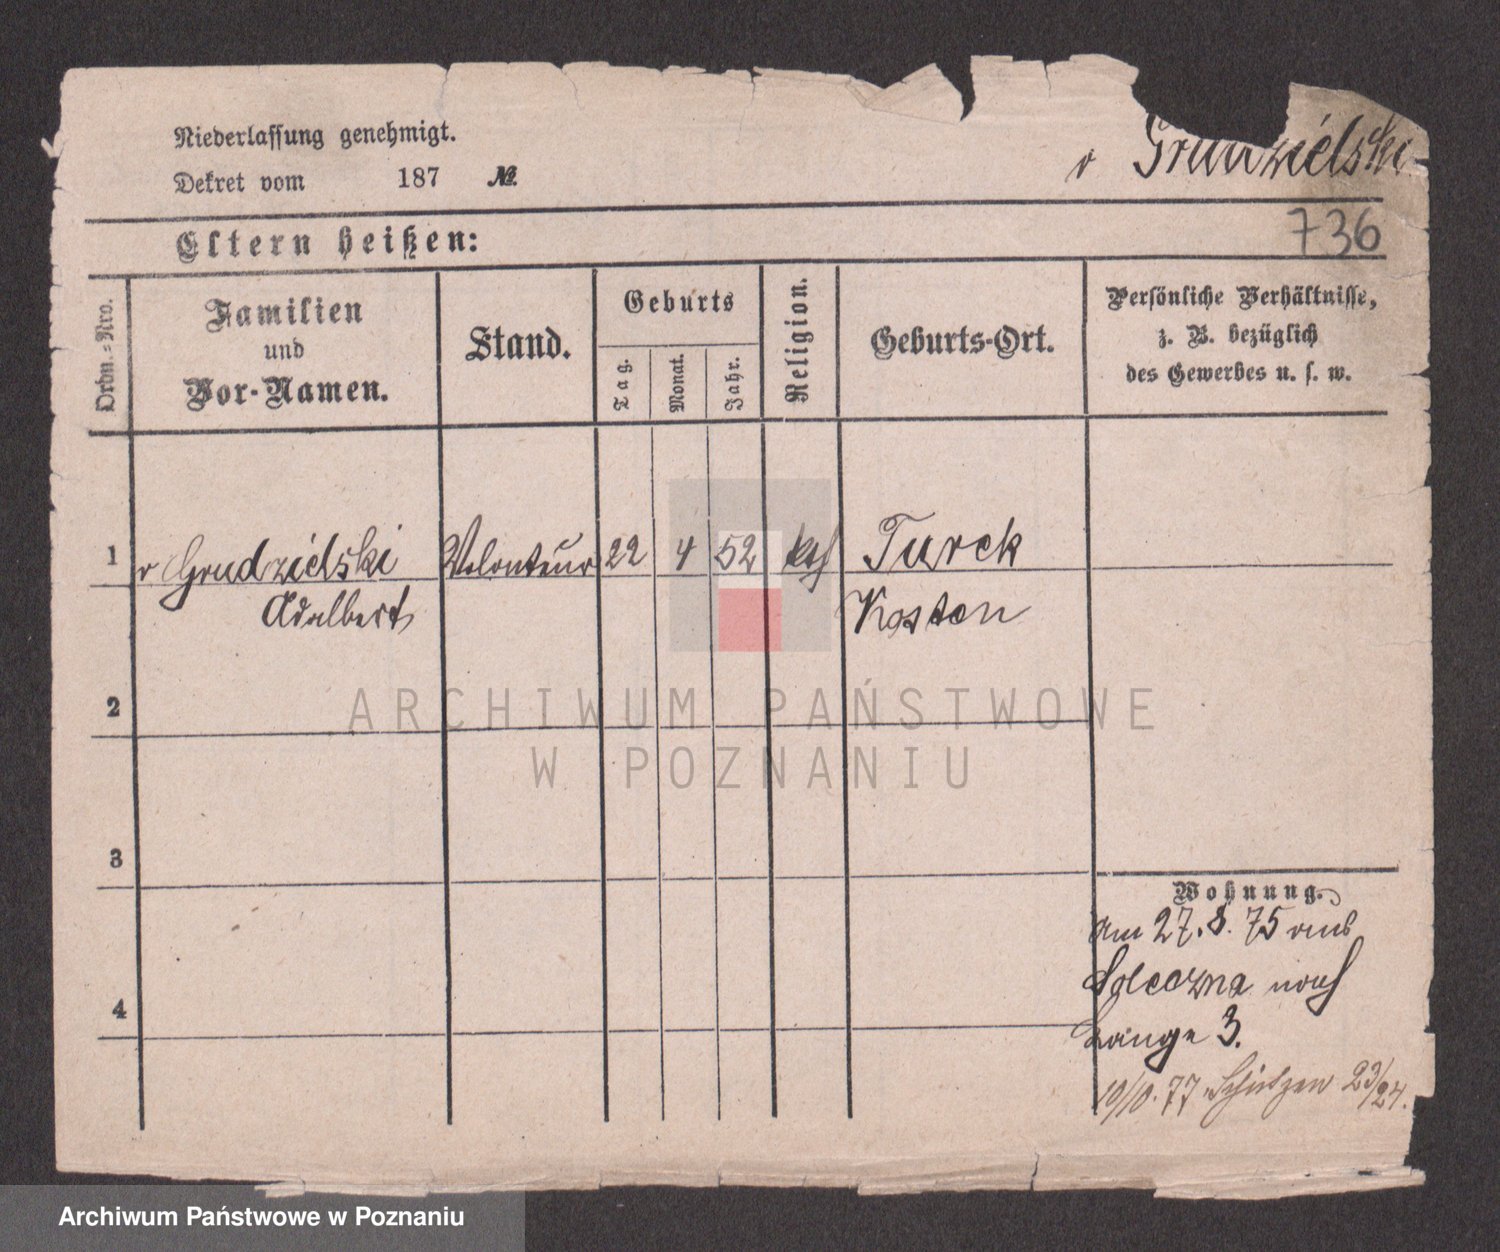 Niederlassung genehmigt.
Dekret vom 187 №.
v Grudzielski
736
Eltern heißen:
Ordn.-Nro.
Familien
und
Vor-Namen.
Stand.
Geburts
Tag.
Monat.
Jahr.
Religion.
Geburts-Ort.
Persönliche Verhältnisse,
z. B. bezüglich
des Gewerbes u. s. w.
1 v Grudzielski Volonteur 22 4 52 kath Turek
Adalbert Kosten
2
3
4
Wohnung.
Am 27. 8. 75 aus
Soleczna nach
Lange 3.
10/10. 77 Schützen 23/24.
ARCHIWUM PAŃSTWOWE
W POZNANIU
Archiwum Państwowe w Poznaniu